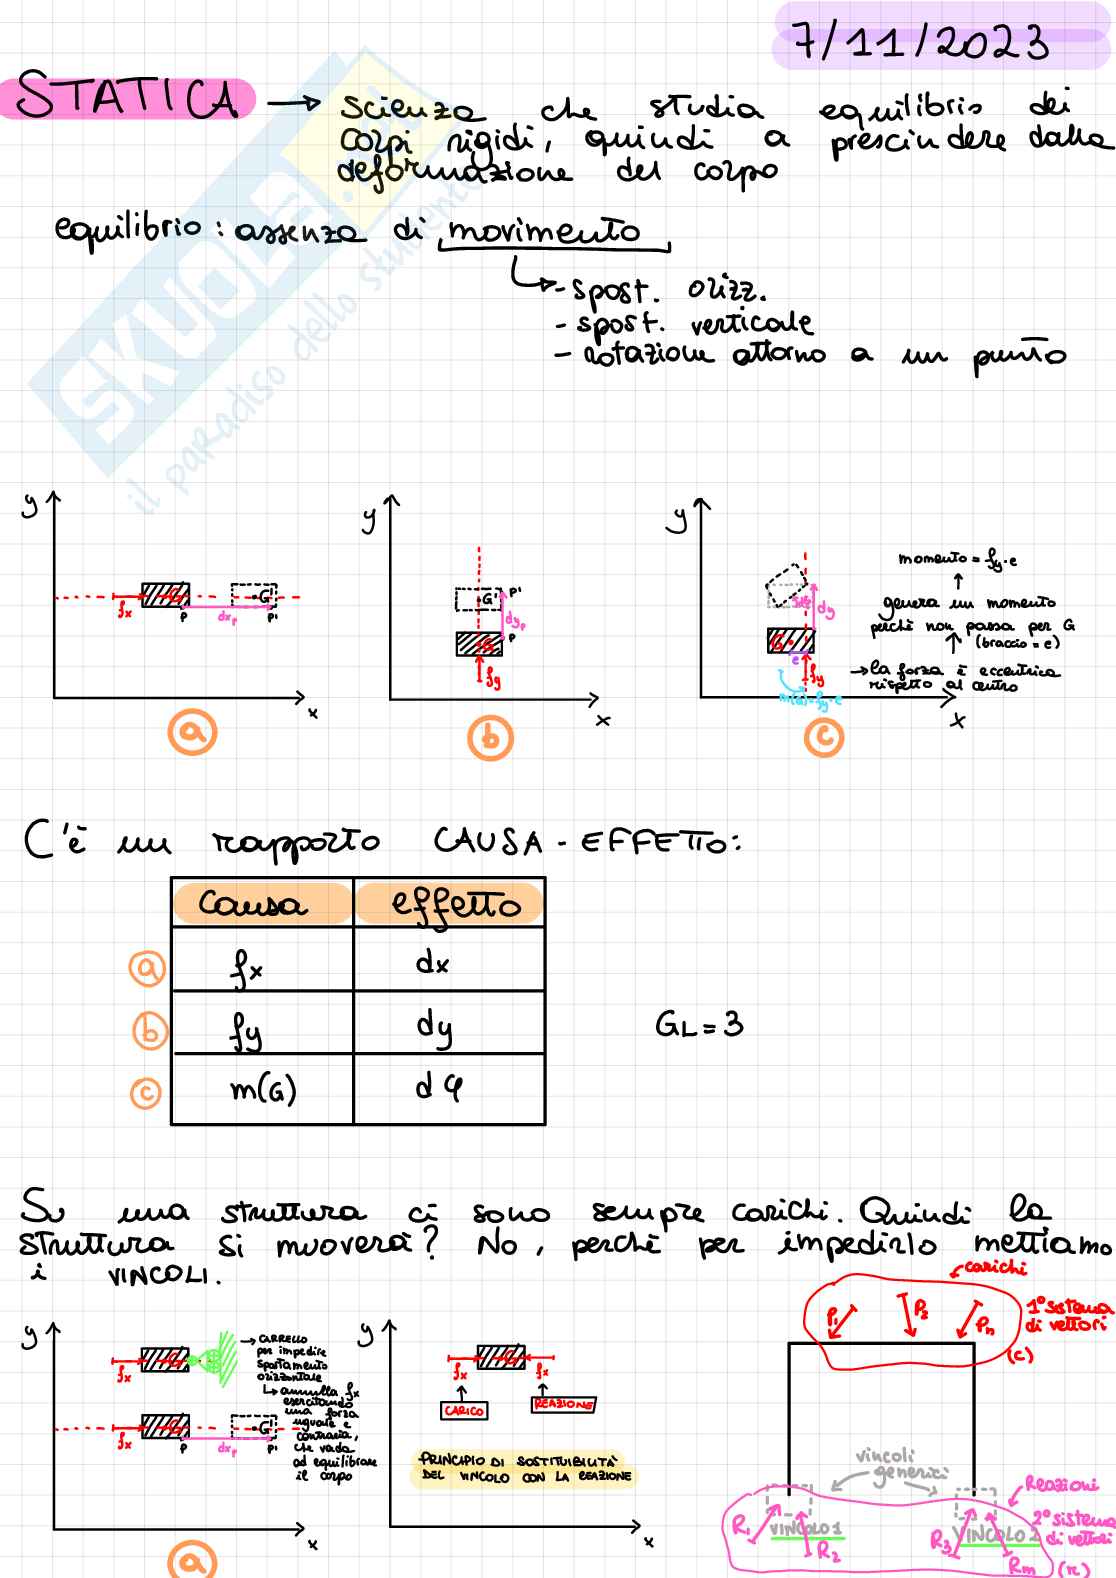 7/11/2023
STATICA → scienza che studia equilibrio dei
corpi rigidi, quindi a prescindere dalla
deformazione del corpo
equilibrio : assenza di movimento
- spost. orizz.
- spost. verticale
- rotazione attorno a un punto
SKUOLA.net
il paradiso dello studente
y
G
G'
fx
P
dxp
P'
x
a
y
G'
P'
dyp
P
G
fy
x
b
y
dy
G
e
fy
m(G)=fy·e
x
c
momento = fy·e
genera un momento
perchè non passa per G
(braccio = e)
→ la forza è eccentrica
rispetto al centro
C'è un rapporto CAUSA-EFFETTO:
causa effetto
a fx dx
b fy dy
c m(G) dφ
GL=3
Su una struttura ci sono sempre carichi. Quindi la
struttura si muoverà? No, perchè per impedirlo mettiamo
i VINCOLI.
y
G
fx
→ CARRELLO
per impedire
spostamento
orizzontale
↳ annulla fx
esercitando
una forza
uguale e
contraria,
che vada
ad equilibrare
il corpo
G
G'
fx
P
dxp
P'
x
a
y
G
fx
fx
CARICO
REAZIONE
PRINCIPIO DI SOSTITUIBILITÀ
DEL VINCOLO CON LA REAZIONE
x
carichi
P1
P2
Pn
1° sistema
di vettori
(c)
vincoli
generici
VINCOLO 1
VINCOLO 2
R1
R2
R3
Rm
Reazioni
2° sistema
di vettori
(r)